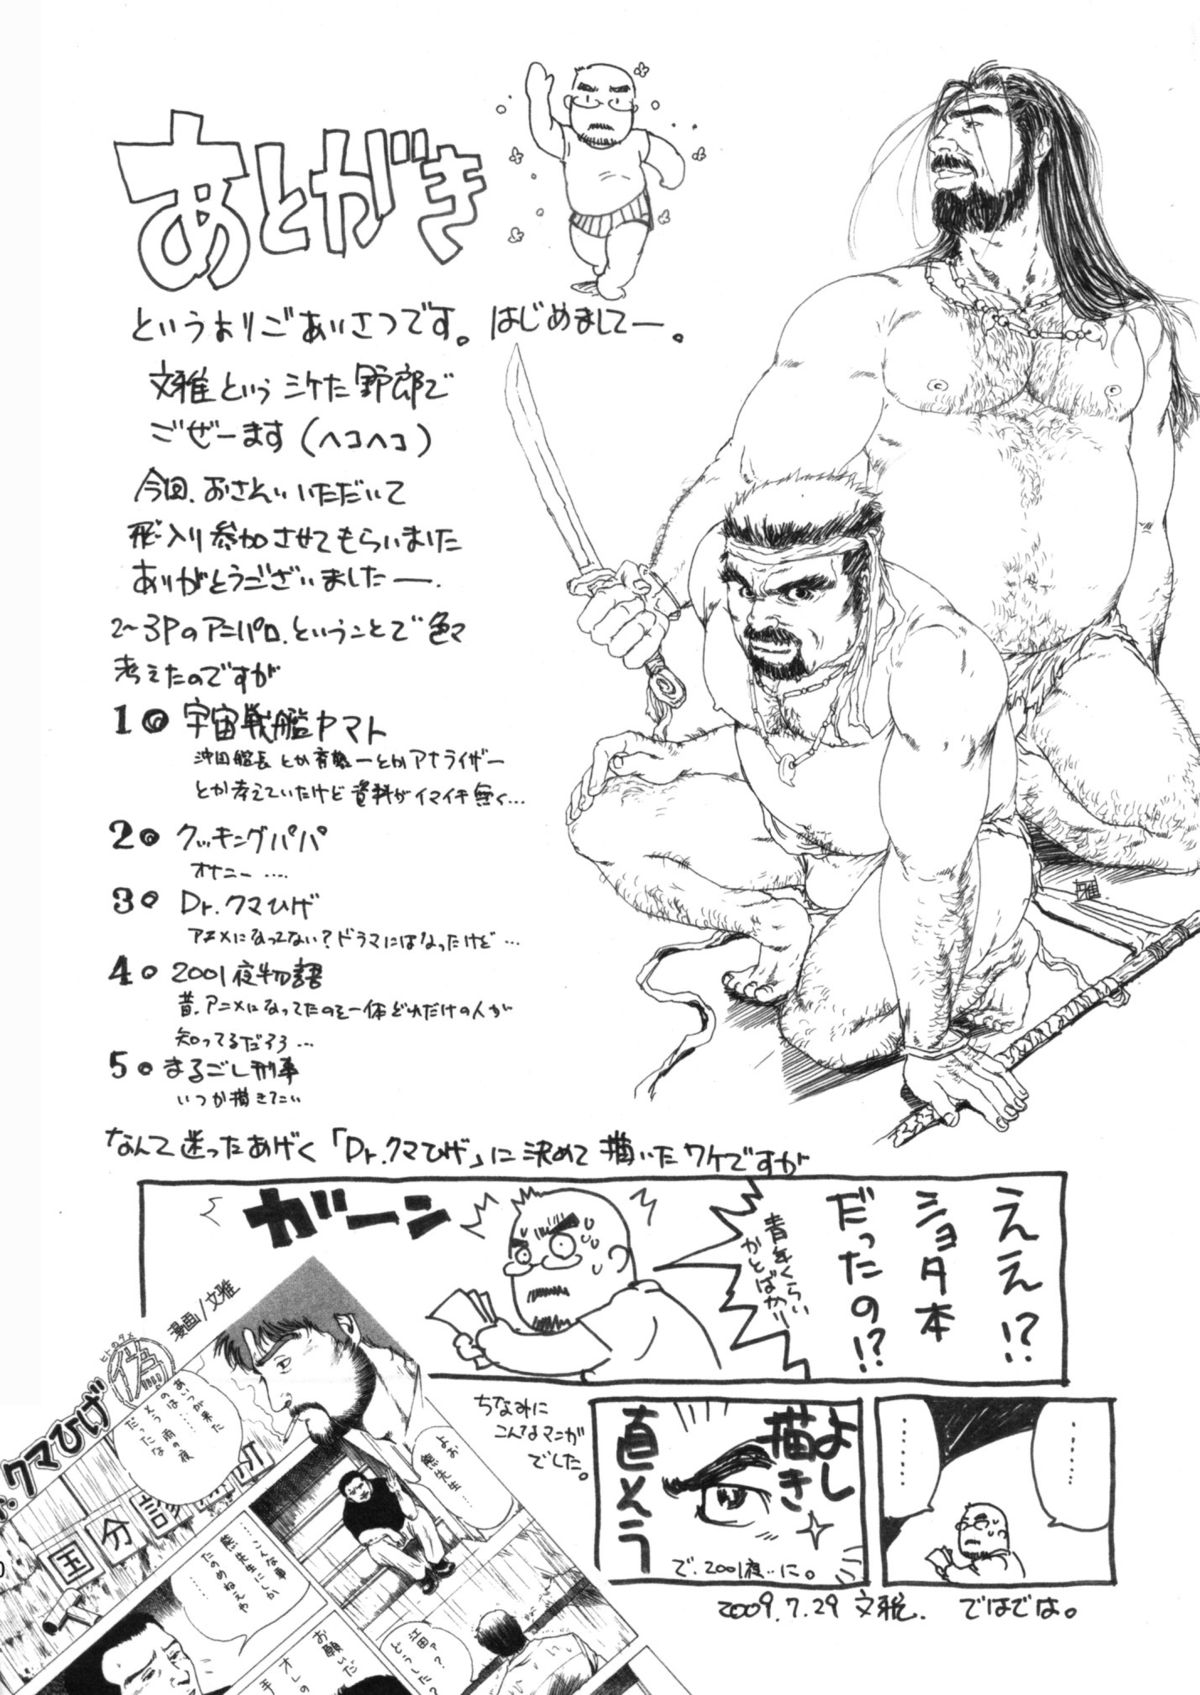 あとがき
というよりごあいさつです。はじめましてー。
文雅というシケた野郎で
ございます(ヘコヘコ)
今回、おさそいいただいて
飛入り参加させてもらいました
ありがとうございましたー.
2～3Pのアニパロ.ということで色々
考えたのですが
1. 宇宙戦艦ヤマト
沖田艦長とか斉藤一とかアナライザー
とか考えていたけど資料がイマイチ無く…
2. クッキングパパ
オナニー ….
3. Dr.クマひげ
アニメになってない?ドラマにはなったけど…
4. 2001夜物語
昔.アニメになってたのを一体どれだけの人が
知ってるだろう…
5. まるごし刑事
いつか描きてェい
なんて迷ったあげく「Dr.クマひげ」に決めて描いたワケですが
ええ!?
ショタ本
だったの!?
青年くらい
かとばかり
ガーン
……
……
よし
描き
直そう
で、2001夜…に。
ちなみに
こんなマンガ
でした。
漫画/文雅
ヒトのタメ
偽
.クマひげ
あいつが来た
のは……
そう…雨の夜
だったな
よお
熊先生…
国分診
……こんな事
熊先生にしか
たのめねえや
お願いだ
オレの
江田ァ?
雅
2009.7.29 文雅. ではでは。